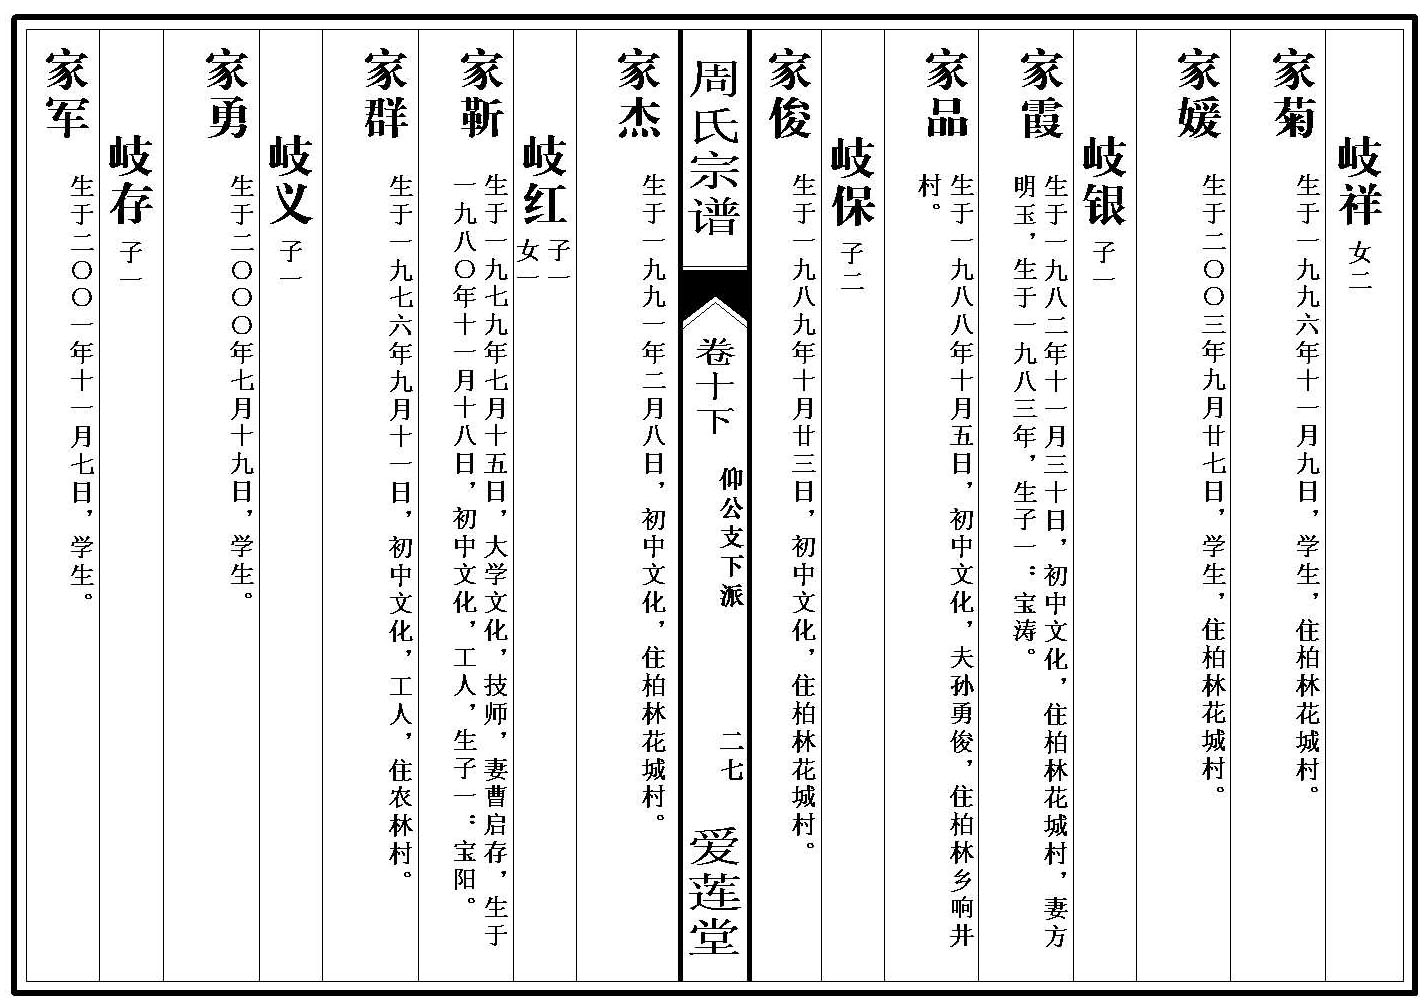 岐祥 女二
家菊 生于一九九六年十一月九日，学生，住柏林花城村。
家媛 生于二〇〇三年九月廿七日，学生，住柏林花城村。
岐银 子一
家霞 生于一九八二年十一月三十日，初中文化，住柏林花城村，妻方
明玉，生于一九八三年，生子一：宝涛。
家品 生于一九八八年十月五日，初中文化，夫孙勇俊，住柏林乡响井
村。
岐保 子二
家俊 生于一九八九年十月廿三日，初中文化，住柏林花城村。
周氏宗谱
卷十下
仰公支下派
二七
爱莲堂
家杰 生于一九九一年二月八日，初中文化，住柏林花城村。
岐红 子一
女一
家靳 生于一九七九年七月十五日，大学文化，技师，妻曹启存，生于
一九八〇年十一月十八日，初中文化，工人，生子一：宝阳。
家群 生于一九七六年九月十一日，初中文化，工人，住农林村。
岐义 子一
家勇 生于二〇〇〇年七月十九日，学生。
岐存 子一
家军 生于二〇〇一年十一月七日，学生。